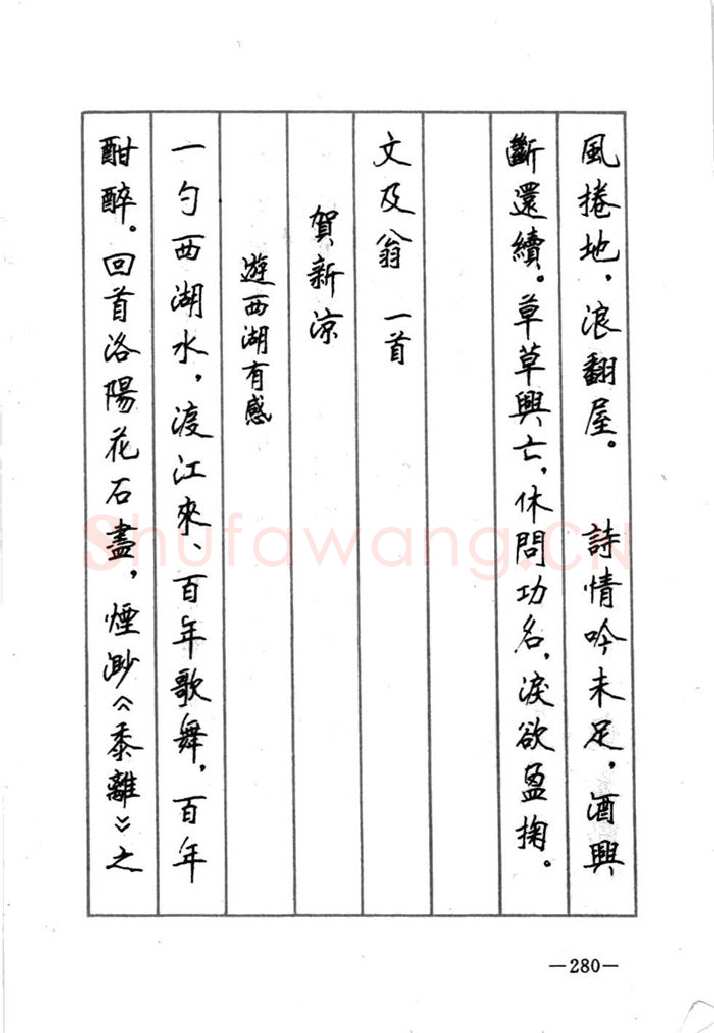 風捲地，浪翻屋。　詩情吟未足，酒興
斷還續。草草興亡，休問功名，淚欲盈掬。
文及翁　一首
賀新涼
遊西湖有感
一勺西湖水，渡江來、百年歌舞，百年
酣醉。回首洛陽花石盡，煙渺《黍離》之
—280—
Shufawang.CN